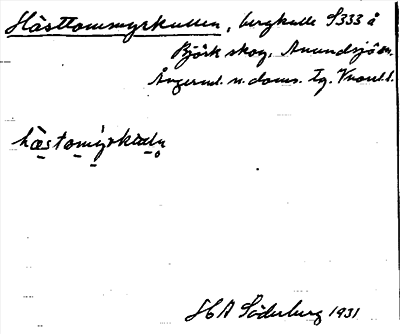 Hästtommyrkullen, bergkulle S333 å
Björk skog, Anundsjö sn.
Ångerml. n. doms. Tg. V
hæstomýrkuln
HA Söderberg 1931